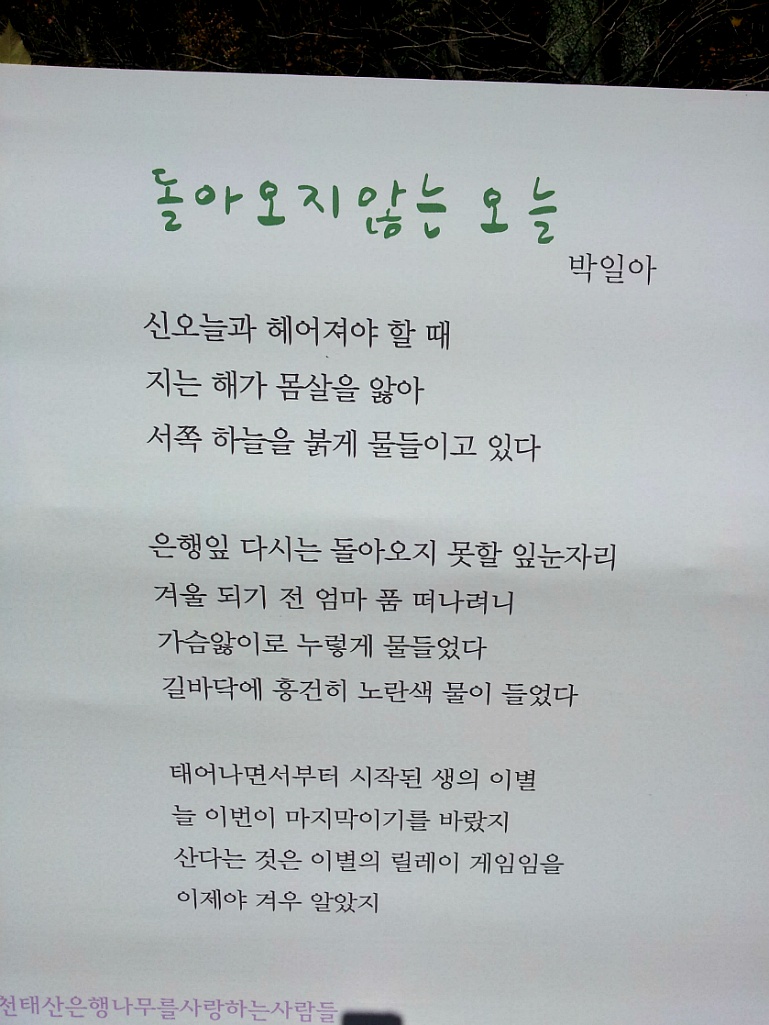 돌아오지않는 오늘
박일아
신오늘과 헤어져야 할 때
지는 해가 몸살을 앓아
서쪽 하늘을 붉게 물들이고 있다
은행잎 다시는 돌아오지 못할 잎눈자리
겨울 되기 전 엄마 품 떠나려니
가슴앓이로 누렇게 물들었다
길바닥에 흥건히 노란색 물이 들었다
태어나면서부터 시작된 생의 이별
늘 이번이 마지막이기를 바랐지
산다는 것은 이별의 릴레이 게임임을
이제야 겨우 알았지
천태산은행나무를사랑하는사람들